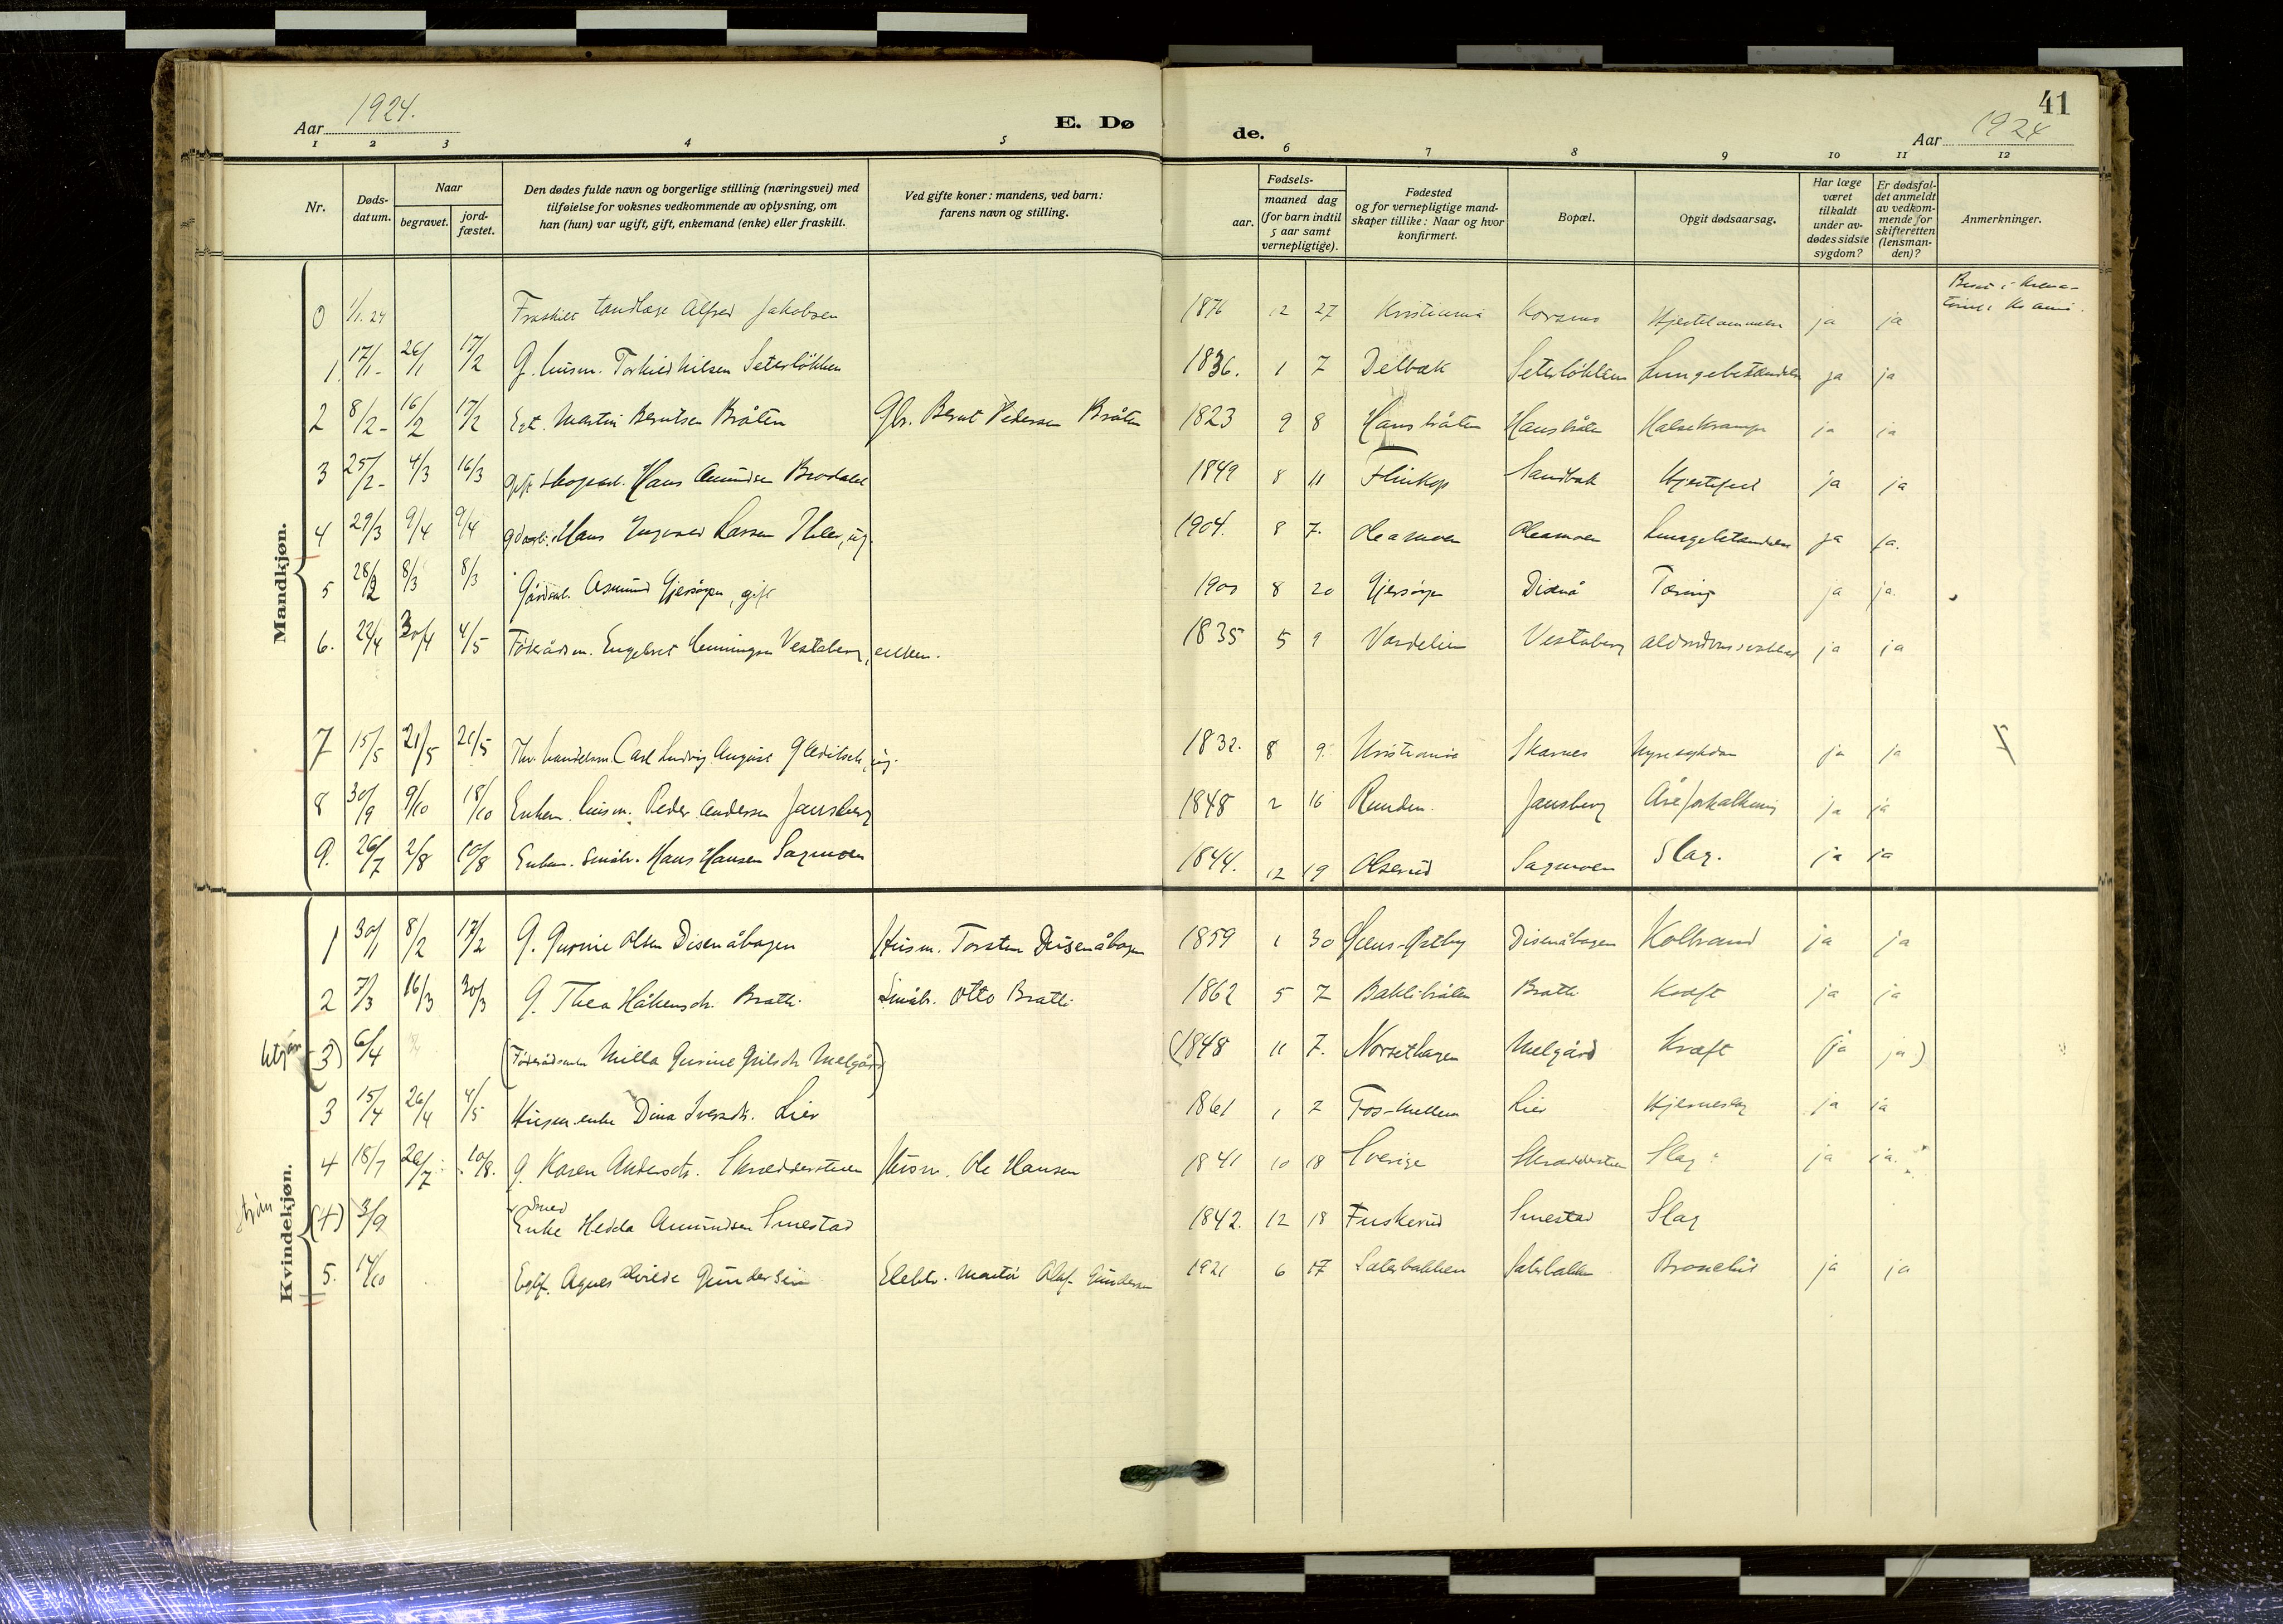 Aar 1924.
E. Døde.
Aar 1924
41
1 2 3 4 5 6 7 8 9 10 11 12
Nr.
Døds-
datum.
Naar
begravet.
jord-
fæstet.
Den dødes fulde navn og borgerlige stilling (næringsvei) med
tilføielse for voksnes vedkommende av oplysning, om
han (hun) var ugift, gift, enkemand (enke) eller fraskilt.
Ved gifte koner: mandens, ved barn:
farens navn og stilling.
Fødsels-
aar.
maaned dag
(for barn indtil
5 aar samt
vernepligtige).
Fødested
og for vernepligtige mand-
skaper tillike: Naar og hvor
konfirmert.
Bopæl.
Opgit dødsaarsag.
Har læge
været
tilkaldt
under av-
dødes sidste
sygdom?
Er dødsfal-
det anmeldt
av vedkom-
mende for
skifteretten
(lensman-
den)?
Anmerkninger.
Mandkjøn.
0 1/1.24 Fraskilt tandlæge Alfred Jakobsen 1876 12 27 Kristiania ja ja
1. 17/1- 26/1 17/2 G. husm. Torkild Nilsen Seterløkken 1836. 1 7 Delbæk Seterløkken Lungebetændelse ja ja
2 8/2- 16/2 17/2 Martin Berntsen Bråten Gbr. Bernt Pedersen Bråten 1823 9 8 Hansbråten Hansbråten Halsekrampe ja ja
3 25/2- 4/3 16/3 Gift Hans Amundsen Brodalen 1849 8 11 Sandbæk Hjertefeil ja ja
4 29/3 9/4 9/4 Hans Ingvald Larsen 1904. 8 7. Oleamoen Oleamoen Lungebetændelse ja ja.
5 28/2 8/3 8/3 Gårdarb. Asmund Gjersøyen, gift 1900 8 20 Gjersøyen Disenå Tæring ja ja.
6. 22/4 30/4 4/5 Føderådsm. Engebret Henningsen Vestaberg, enkem. 1835 5 9 Vardelien Vestaberg ja ja
7 15/5 21/5 21/5 Fhv. handelsm. Carl Ludvig August Gleditsch, ug. 1832. 8 9. Kristiania Skarnes Nyresykdom ja ja
8 30/9 9/10 18/10 Enkem. husm. Peder Andersen Jansberg 1848 2 16 Runden. Jansberg Åreforkalkning ja ja
9. 26/7 2/8 10/8 Enkem. småbr. Hans Hansen Sagmoen 1844. 12 19 Olserud Sagmoen Slag. ja ja
Kvindekjøn.
1 30/1 8/2 17/2 G. Gurine Olsen Disenåhagen Husm. Torsten Disenåhagen 1859 1 30 Disenåhagen Koldbrand ja ja
2 7/3 16/3 30/3 G. Thea Håkensdt. Bratli Småbr. Otto Bratli 1862 5 7 Baklibråten Bratli Kræft ja ja
Utgår (3) 6/4 (Føderådsenke Milla Gurine Melgård) (1848 11 7. Norsethagen Melgård Kræft (ja ja)
3 15/4 26/4 4/5 Husm.enke Dina Iversdt. Lier 1861 1 7 Fos-Mellem Lier Hjerneslag ja ja
4 18/7 26/7 10/8. G. Karen Andersdt. Skrædderstuen Husm. Ole Hansen 1841 10 18 Sverige Skrædderstuen Slag ja ja.
utgår (4) 3/9 Enke Hedda Amundsen Smestad 1842. 12 18 Fuskerud Smestad Slag
5. 14/10 Agnes Gundersen Elektr. montør Olaf Gundersen 1921 6 17 Sæterbakken Sæterbakken Bronchit ja ja